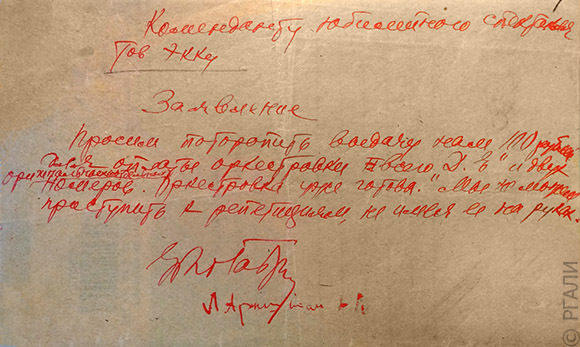 Коменданту юбилейного спектакля
тов Экку
Заявление
Просим поторопить выдачу нам 110 рублей
для оплаты оркестровки "Д. Е." и двух
оригинальных
номеров. Оркестровка уже готова. Мы не можем
приступить к репетициям, не имея ее на руках.
Арнштам Л
© РГАЛИ